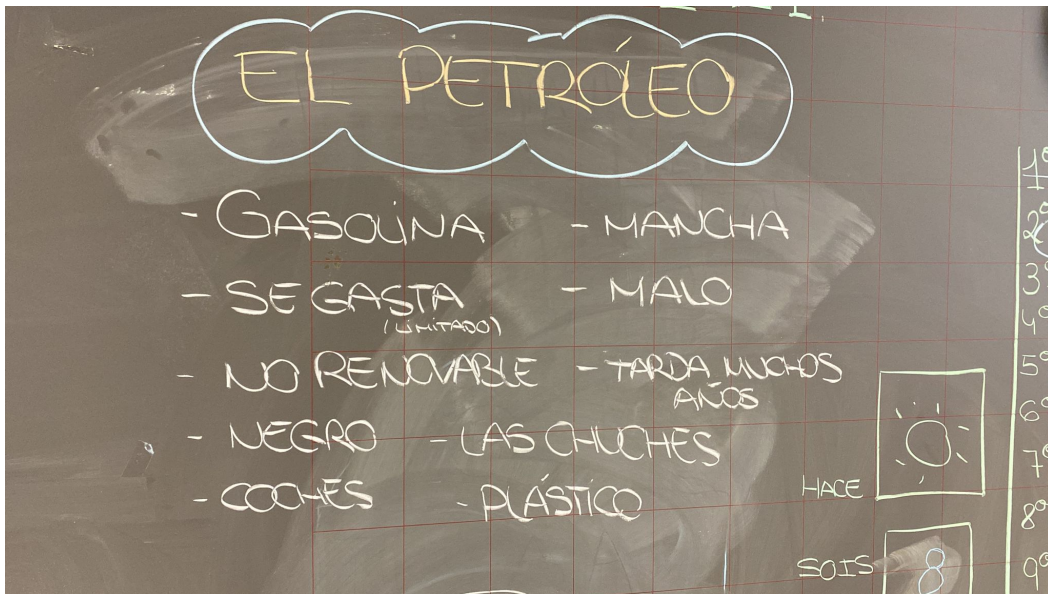 EL PETRÓLEO
- GASOLINA
- SE GASTA
(LIMITADO)
- NO RENOVABLE
- NEGRO
- COCHES
- MANCHA
- MALO
- TARDA MUCHOS
AÑOS
- LAS CHUCHES
- PLÁSTICO
HACE
SOIS 8
1º
2º
3º
4º
5º
6º
7º
8º
9º